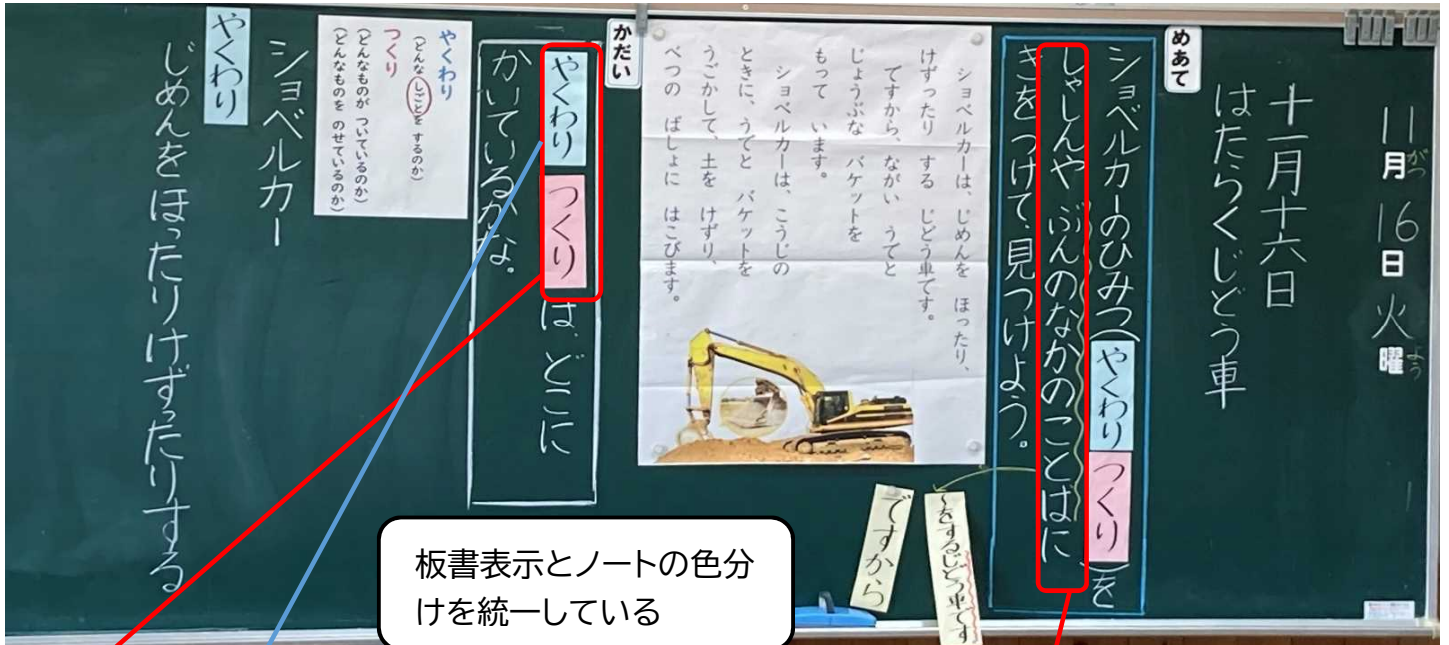 11月16日火曜
がつ
よう
十一月十六日
はたらくじどう車
めあて
ショベルカーのひみつ(やくわり つくり)を
しゃしんや ぶんのなかのことばに
きをつけて、見つけよう。
~をするじどう車です
ですから
ショベルカーは、じめんを ほったり、
けずったり する じどう車です。
ですから、ながい うでと
じょうぶな バケットを
もって います。
ショベルカーは、こうじの
ときに、うでと バケットを
うごかして、土を けずり、
べつの ばしょに はこびます。
かだい
やくわり つくり は、どこに
かいているかな。
やくわり
(どんな しごとを するのか)
つくり
(どんなものが ついているのか)
(どんなものを のせているのか)
ショベルカー
やくわり
じめんをほったりけずったりする
板書表示とノートの色分
けを統一している